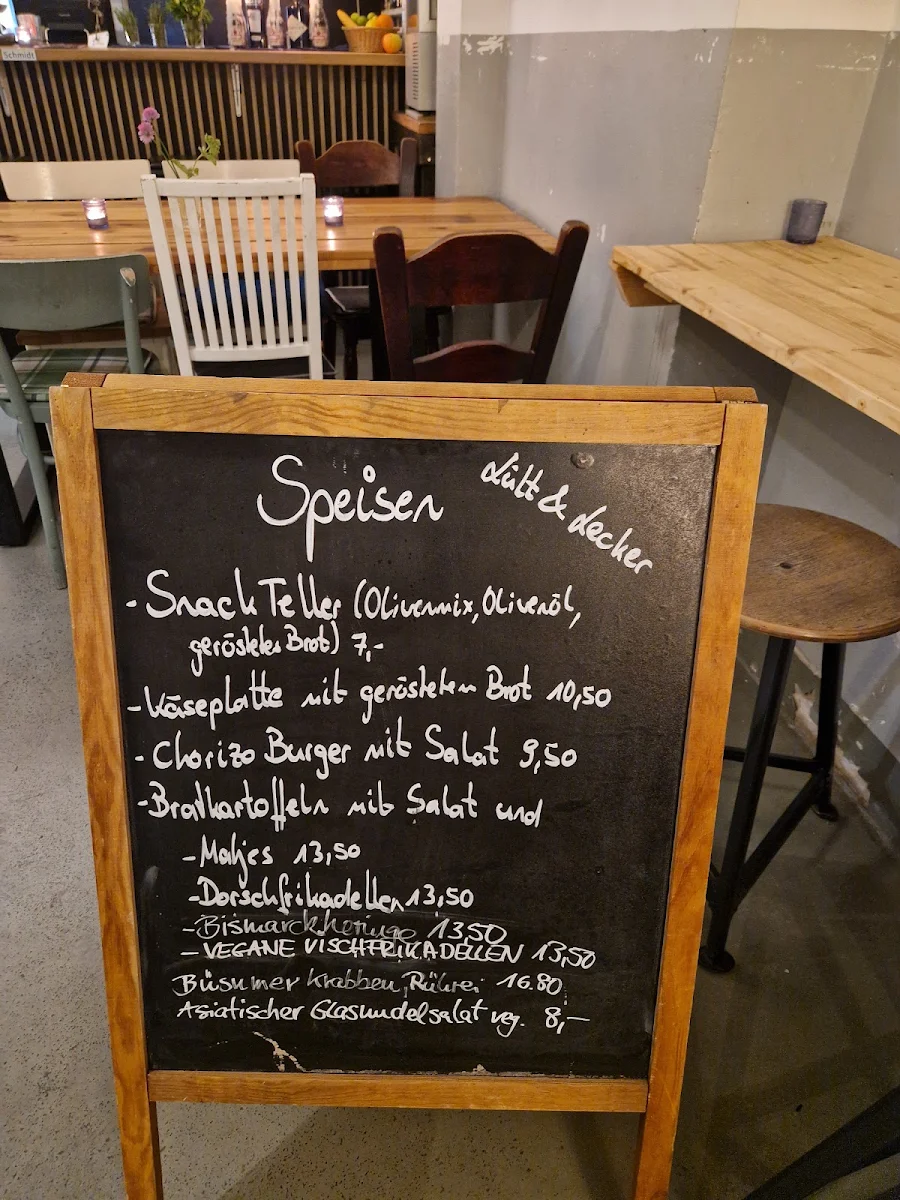 Schmidt
Speisen
Lütt & lecker
- Snack Teller (Olivenmix, Olivenöl,
geröstetes Brot) 7,-
- Käseplatte mit geröstetem Brot 10,50
- Chorizo Burger mit Salat 9,50
- Bratkartoffeln mit Salat und
- Matjes 13,50
- Dorschfrikadellen 13,50
- Bismarckheringe 13,50
- VEGANE VISCHFRIKADELLEN 13,50
Büsumer Krabben, Rührei 16.80
Asiatischer Glasnudelsalat veg. 8,-